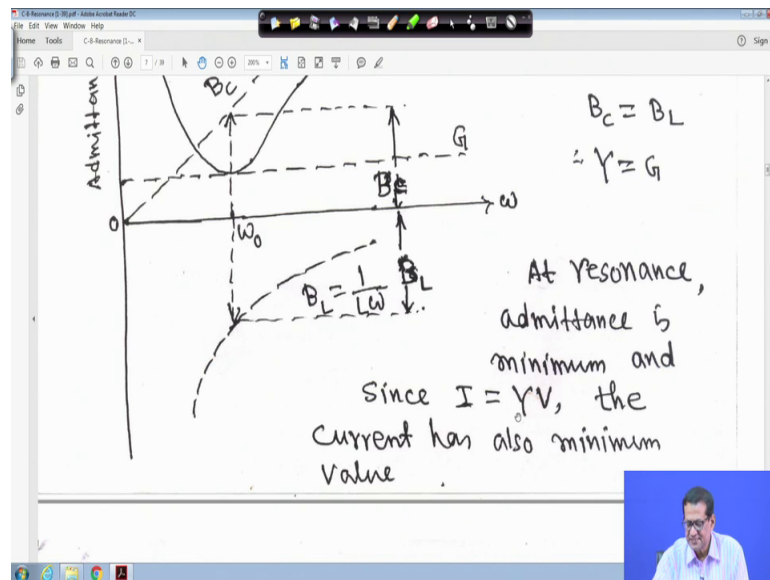 C-8-Resonance [1-39].pdf - Adobe Acrobat Reader DC
File Edit View Window Help
Home Tools C-8-Resonance [1-... × Sign
7 / 39 200%
Admittan
Bc
G
Bc
0
ω
ω₀
B_L = 1/Lω
B_L
Bc = B_L
∴ Y = G
At resonance,
admittance is
minimum and
Since I = YV, the
current has also minimum
value .